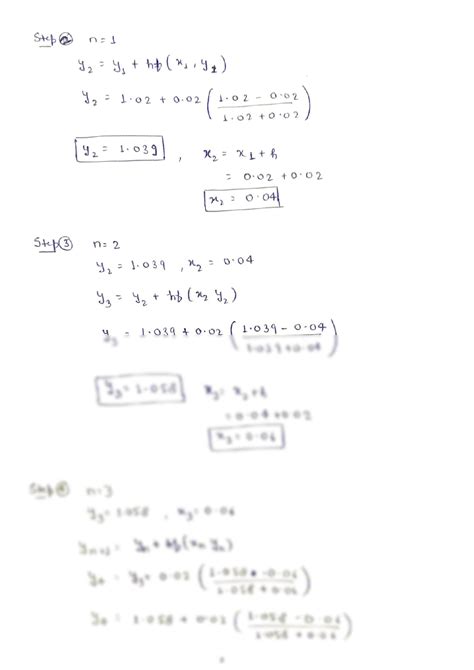 Step ② n = 1
y₂ = y₁ + hf(x₁, y₁)
y₂ = 1.02 + 0.02 ( (1.02 - 0.02) / (1.02 + 0.02) )
y₂ = 1.039 , x₂ = x₁ + h
= 0.02 + 0.02
x₂ = 0.04
Step ③ n = 2
y₂ = 1.039 , x₂ = 0.04
y₃ = y₂ + hf(x₂ y₂)
y₃ = 1.039 + 0.02 ( (1.039 - 0.04) / (1.039 + 0.04) )
y₃ = 1.058 x₃ = x₂ + h
= 0.04 + 0.02
x₃ = 0.06
Step ④ n = 3
y₃ = 1.058 , x₃ = 0.06
yₙ₊₁ = yₙ + hf(xₙ yₙ)
y₄ = y₃ + 0.02 ( (1.058 - 0.06) / (1.058 + 0.06) )
y₄ = 1.058 + 0.02 ( (1.058 - 0.06) / (1.058 + 0.06) )